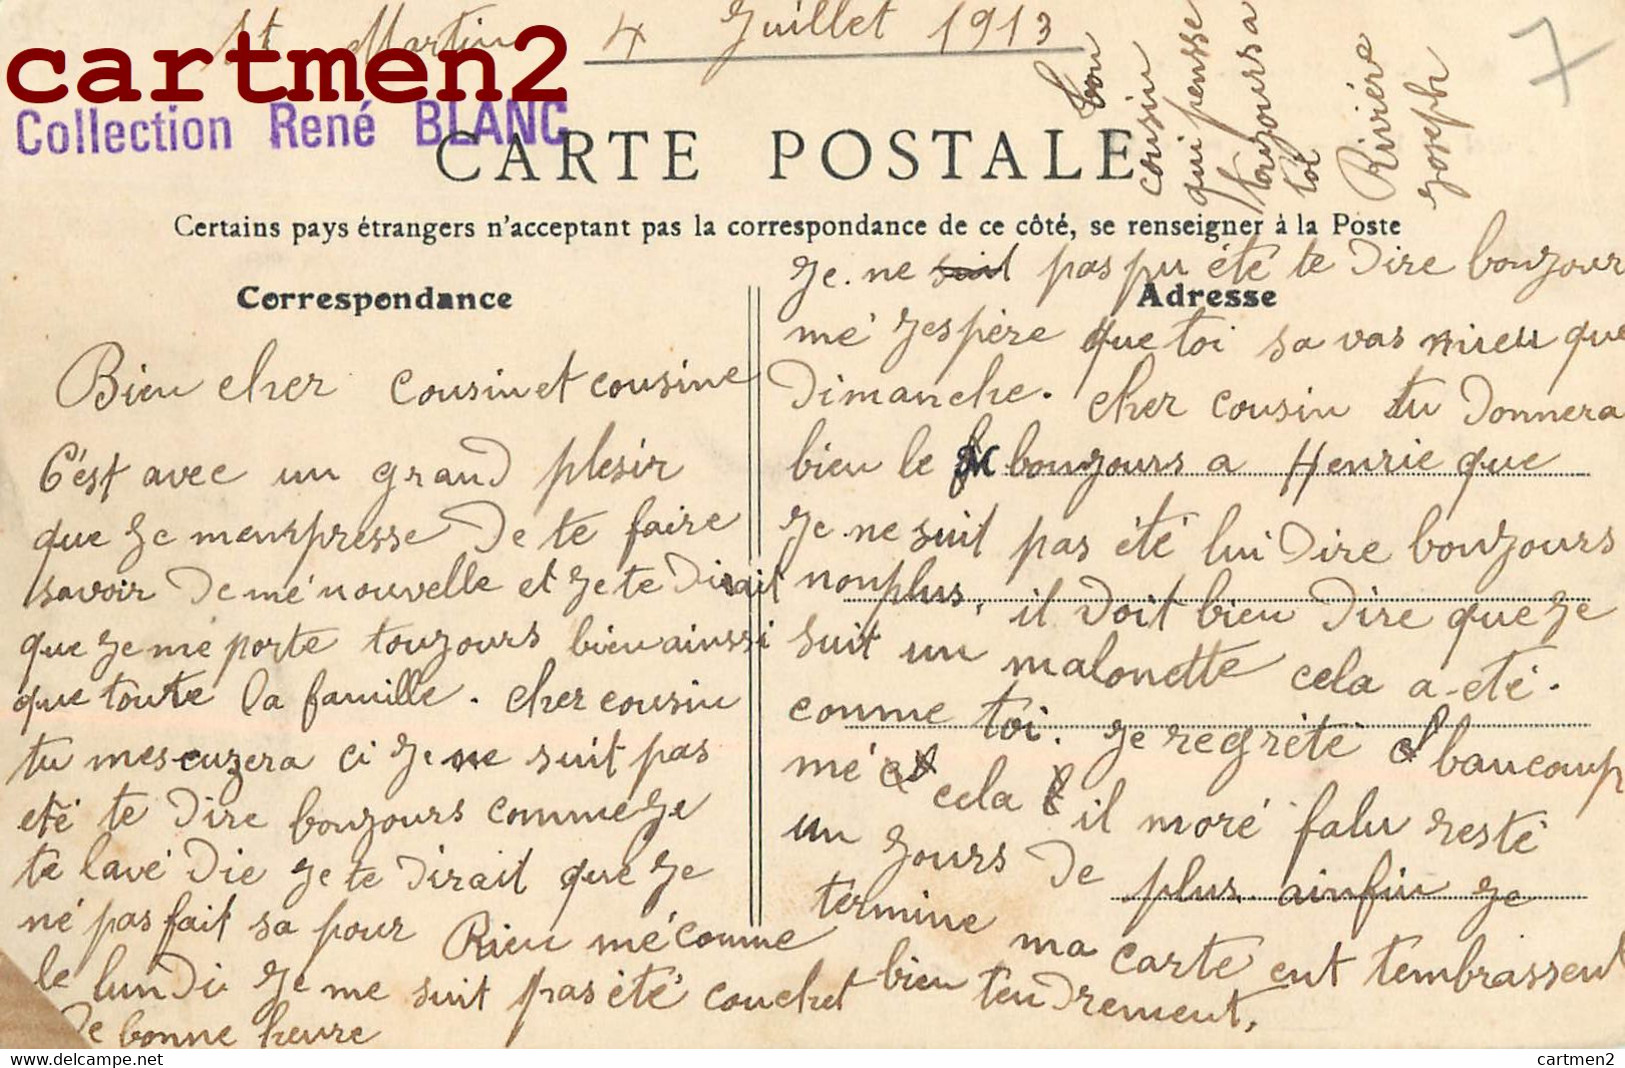 St Martin 4 Juillet 1913
7
cartmen2
Collection René BLANC
CARTE POSTALE
Certains pays étrangers n'acceptant pas la correspondance de ce côté, se renseigner à la Poste
Correspondance
Adresse
Bien cher cousin et cousine
C'est avec un grand plesir
que je menspresse de te faire
savoir de mé nouvelle et je te dirait
que je me porte toujours bien ainssi
que toute la famille. cher cousin
tu mescuzera ci je ne suit pas
été te dire boujours comme je
te lavé die je te dirait que je
né pas fait sa pour Rien mé comme
le lundi je me suit pas été couchet
de bonne heure
Je ne suit pas pu été te dire boujour
mé jespère que toi sa vas mieu que
dimanche. cher cousin tu donnera
bien le boujours a Henrie que
je ne suit pas été lui dire boujours
nonplus, il doit bien dire que je
suit un malonette cela a-été.
comme toi. je regrété baucoup
mé cela il moré falu resté
un jours de plus. ainfin je
termine ma carte ent tembrassent
bien tendrement.
bon
cousin
qui pensse
toujours a
toi
Rivière
Joseph
cartmen2